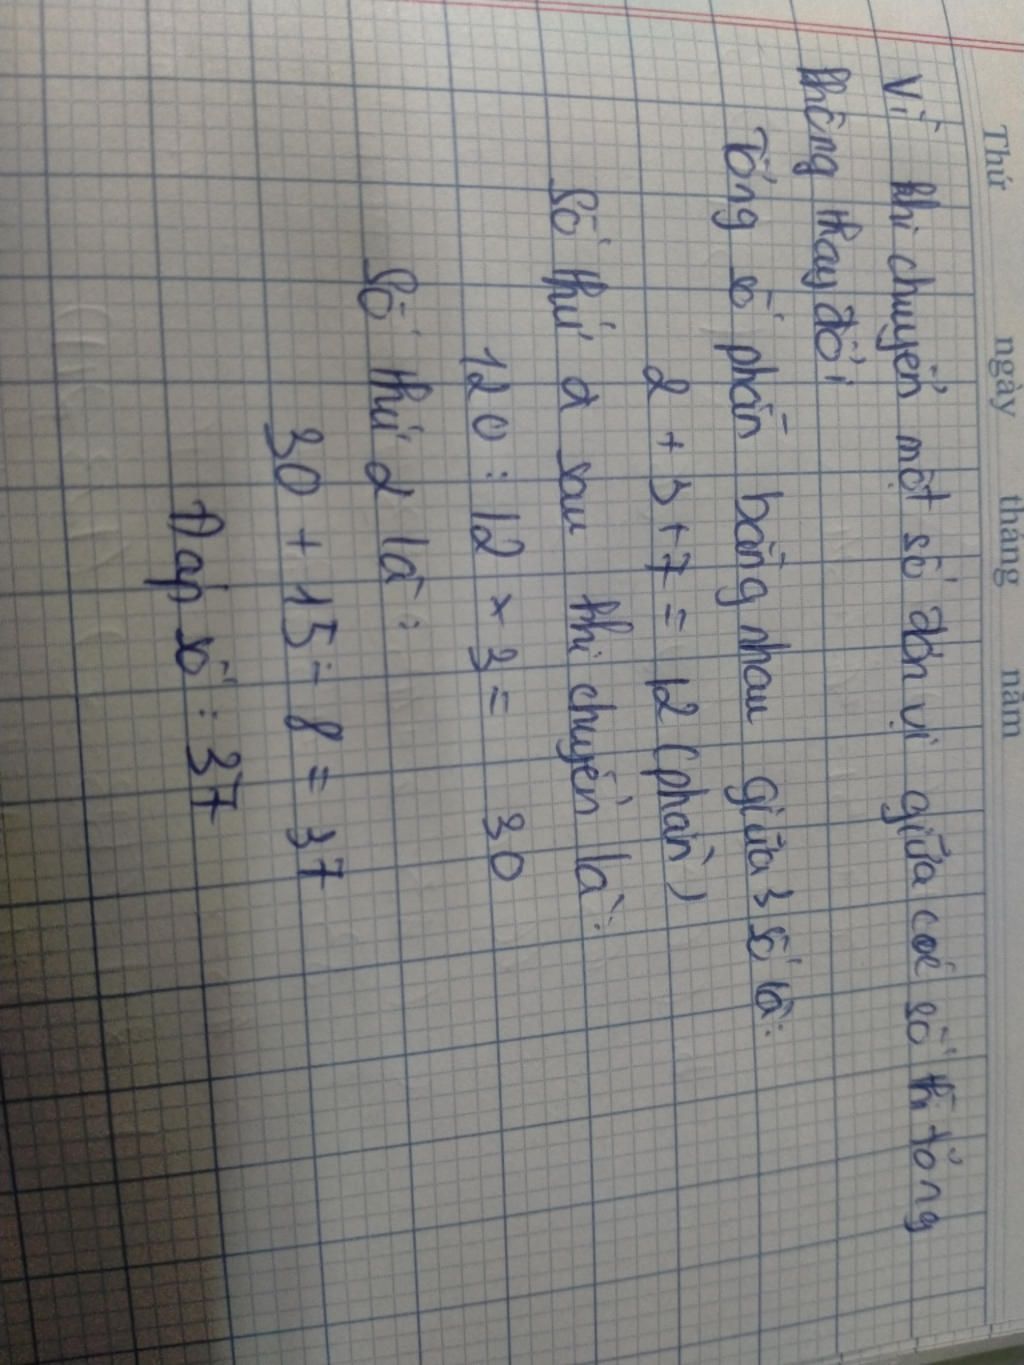 Thứ ngày tháng năm
Vì khi chuyển một số đơn vị giữa các số thì tổng
không thay đổi
Tổng số phần bằng nhau giữa 3 số là:
2 + 3 + 7 = 12 (phần)
Số thứ 2 sau khi chuyển là:
120 : 12 x 3 = 30
Số thứ 2 là:
30 + 15 - 8 = 37
Đáp số : 37